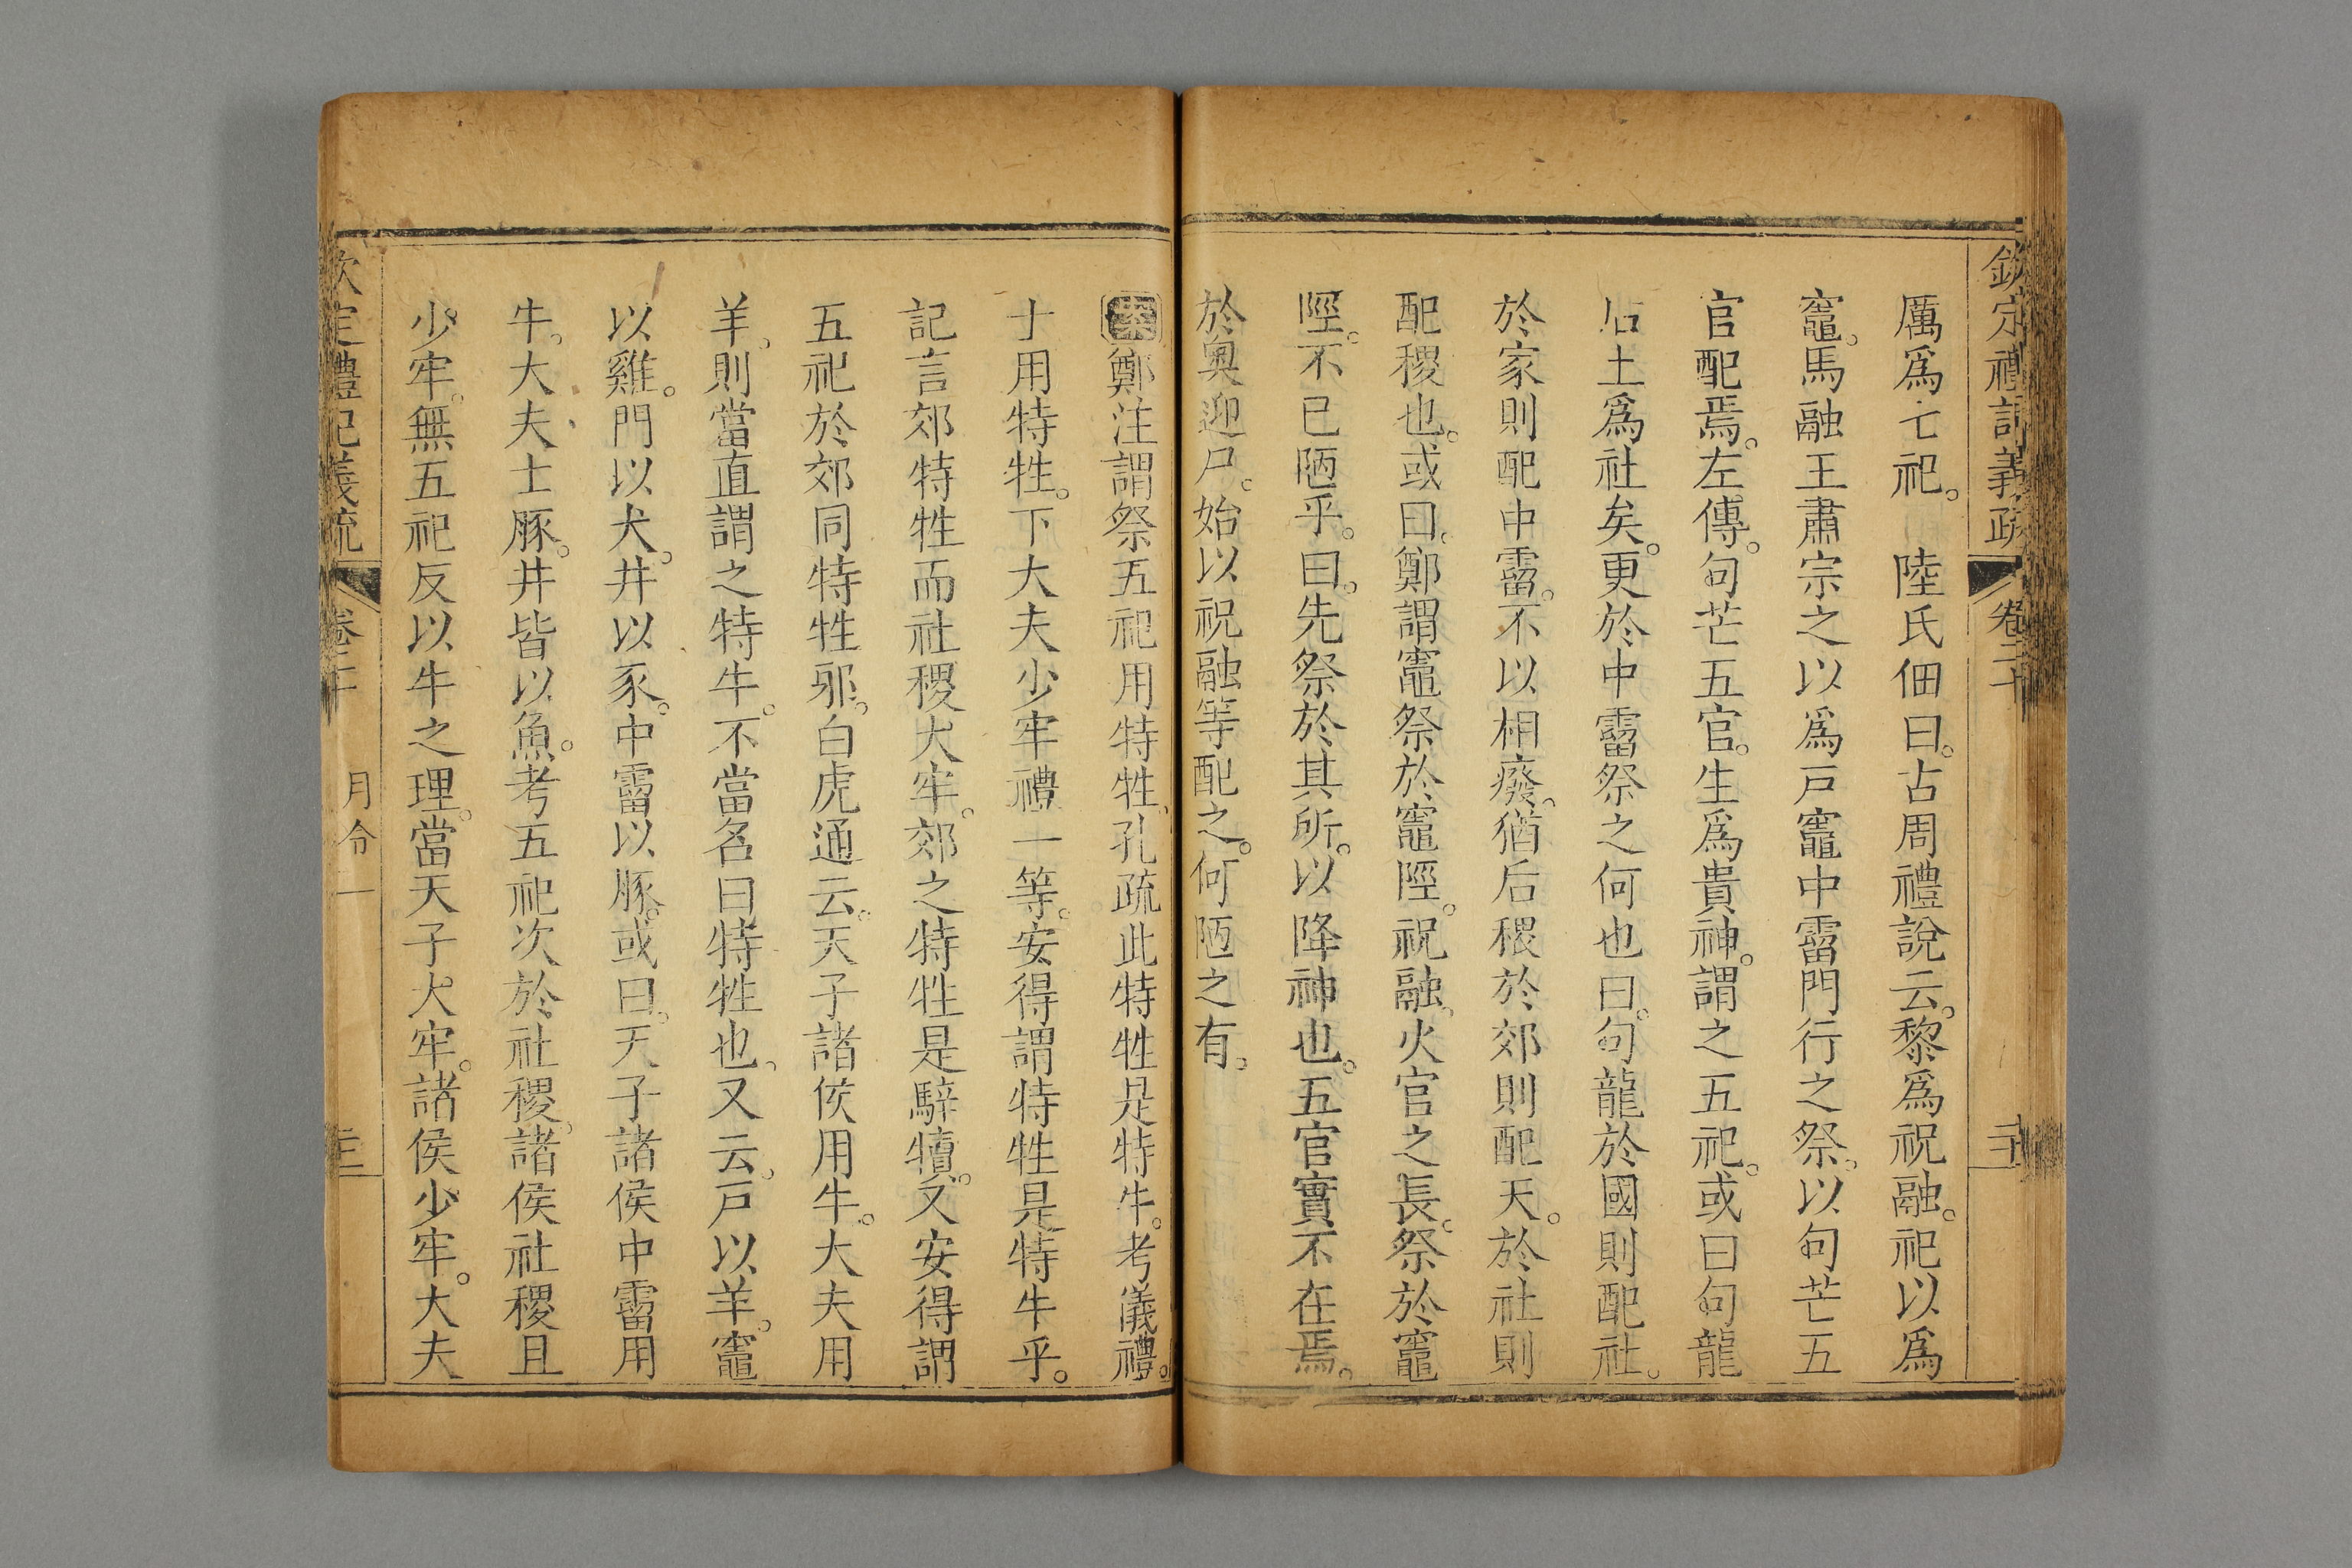 欽定禮記義疏 卷二十
厲爲七祀。 陸氏佃曰。古周禮說云。黎爲祝融。祀以爲
竈。馬融王肅宗之以爲戸竈中霤門行之祭。以句芒五
官配焉。左傳。句芒五官。生爲貴神。謂之五祀。或曰句龍
后土爲社矣。更於中霤祭之何也曰。句龍於國則配社。
於家則配中霤。不以相廢。猶后稷於郊則配天。於社則
配稷也。或曰。鄭謂竈祭於竈陘。祝融。火官之長。祭於竈
陘。不已陋乎。曰。先祭於其所。以降神也。五官實不在焉。
於奧迎尸。始以祝融等配之。何陋之有。
案鄭注謂祭五祀用特牲。孔疏此特牲是特牛。考儀禮。
士用特牲。下大夫少牢禮一等。安得謂特牲是特牛乎。
記言郊特牲而社稷大牢。郊之特牲是騂犢。又安得謂
五祀於郊同特牲邪。白虎通云。天子諸侯用牛。大夫用
羊。則當直謂之特牛。不當名曰特牲也。又云。戸以羊。竈
以雞。門以犬。井以豕。中霤以豚。或曰。天子諸侯中霤用
牛。大夫士豚。井皆以魚。考五祀次於社稷。諸侯社稷且
少牢。無五祀反以牛之理。當天子大牢。諸侯少牢。大夫
欽定禮記義疏 卷二十 月令一